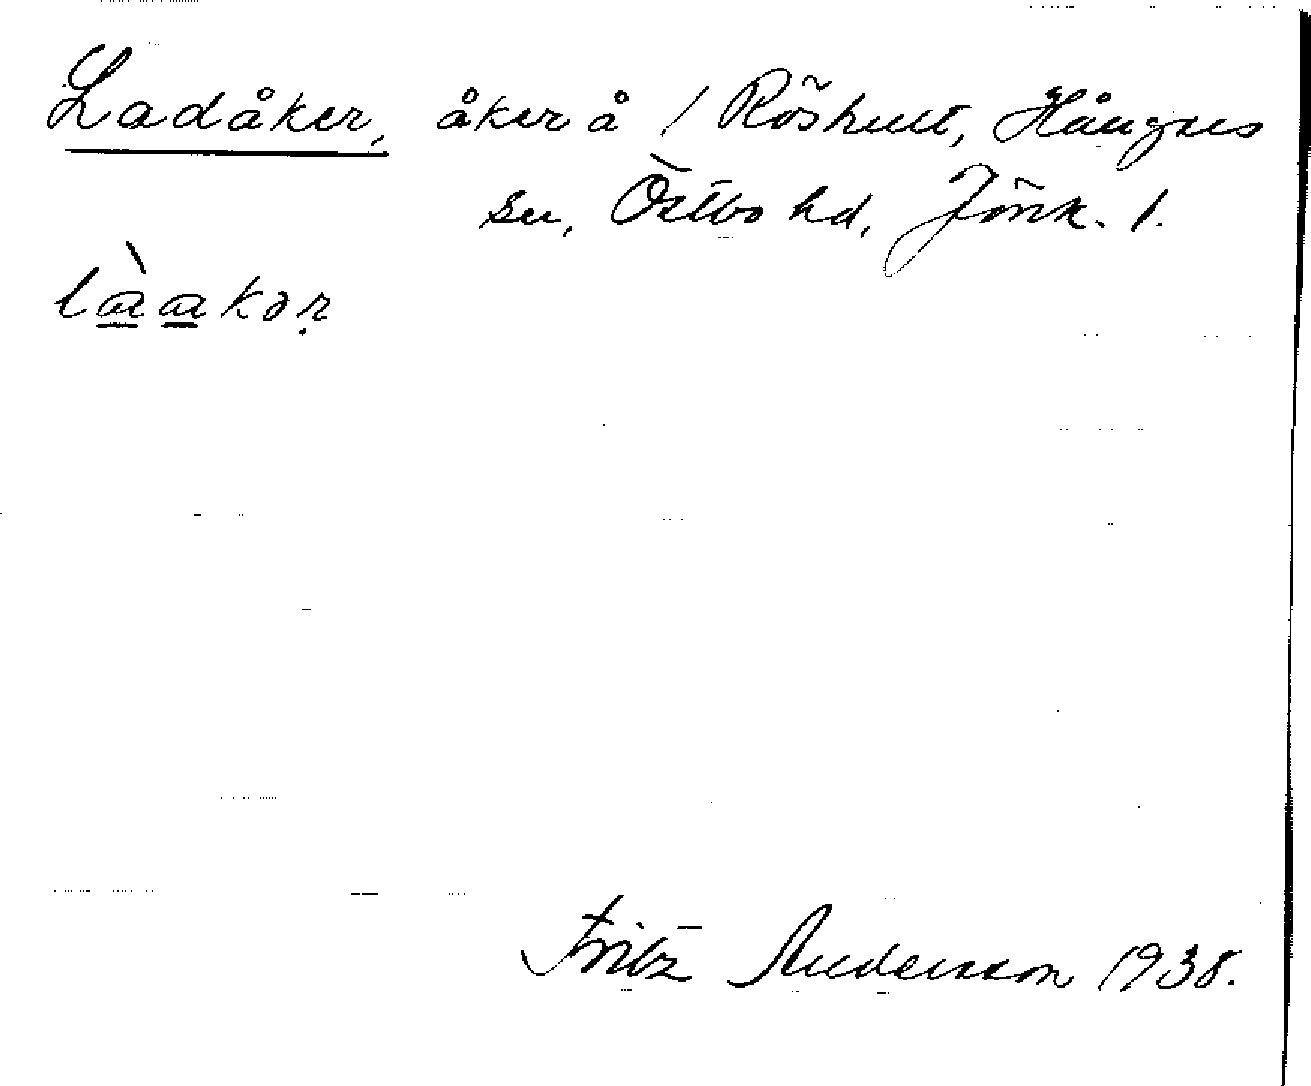 Ladåker, åker å / Röshult, Hångers
sn, Östbo hd, Jönk. l.
là̱a̱kər̥
Fritz Andersson 1938.